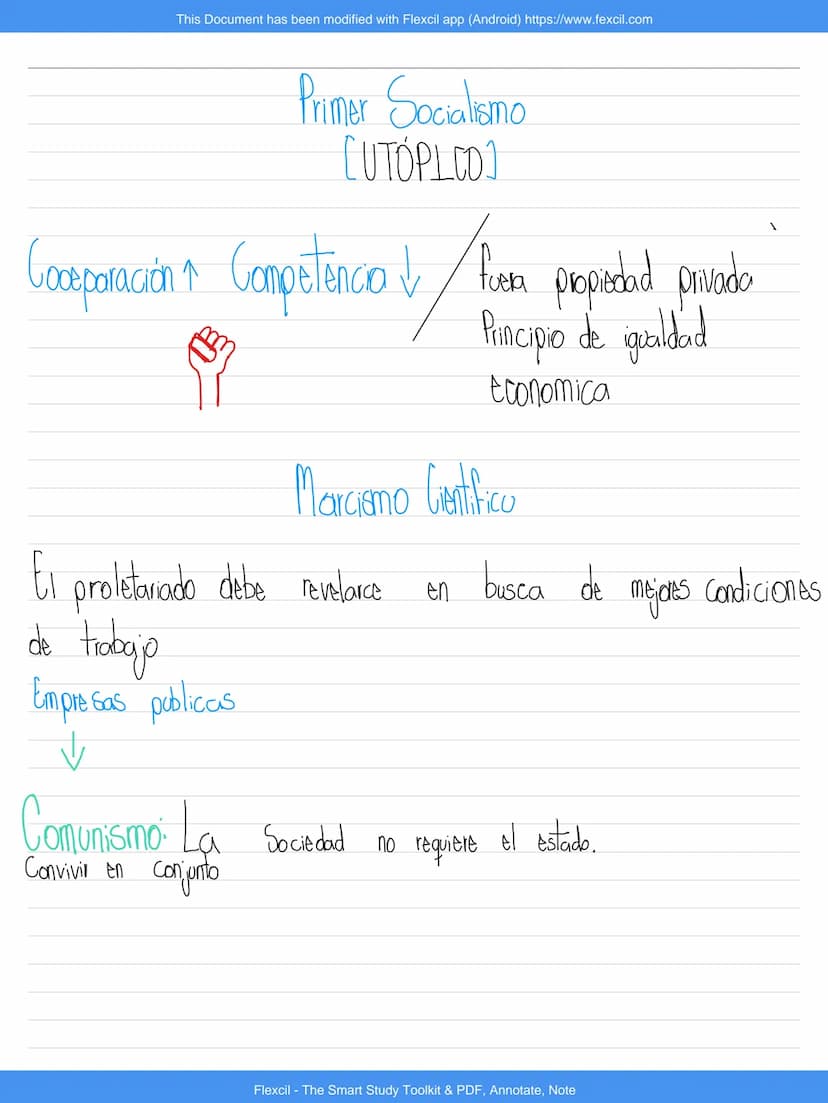 This Document has been modified with Flexcil app (Android) https://www.fexcil.com
Primer Socialismo
[UTÓPICO]
Cooeparación ↑ Competencia ↓ / fuera propiedad privada
Principio de igualdad
economica
Marcismo Científico
El proletariado debe revelarce en busca de mejores condiciones
de trabajo
Empresas publicas
↓
Comunismo: La Sociedad no requiere el estado.
Convivir en conjunto
Flexcil - The Smart Study Toolkit & PDF, Annotate, Note